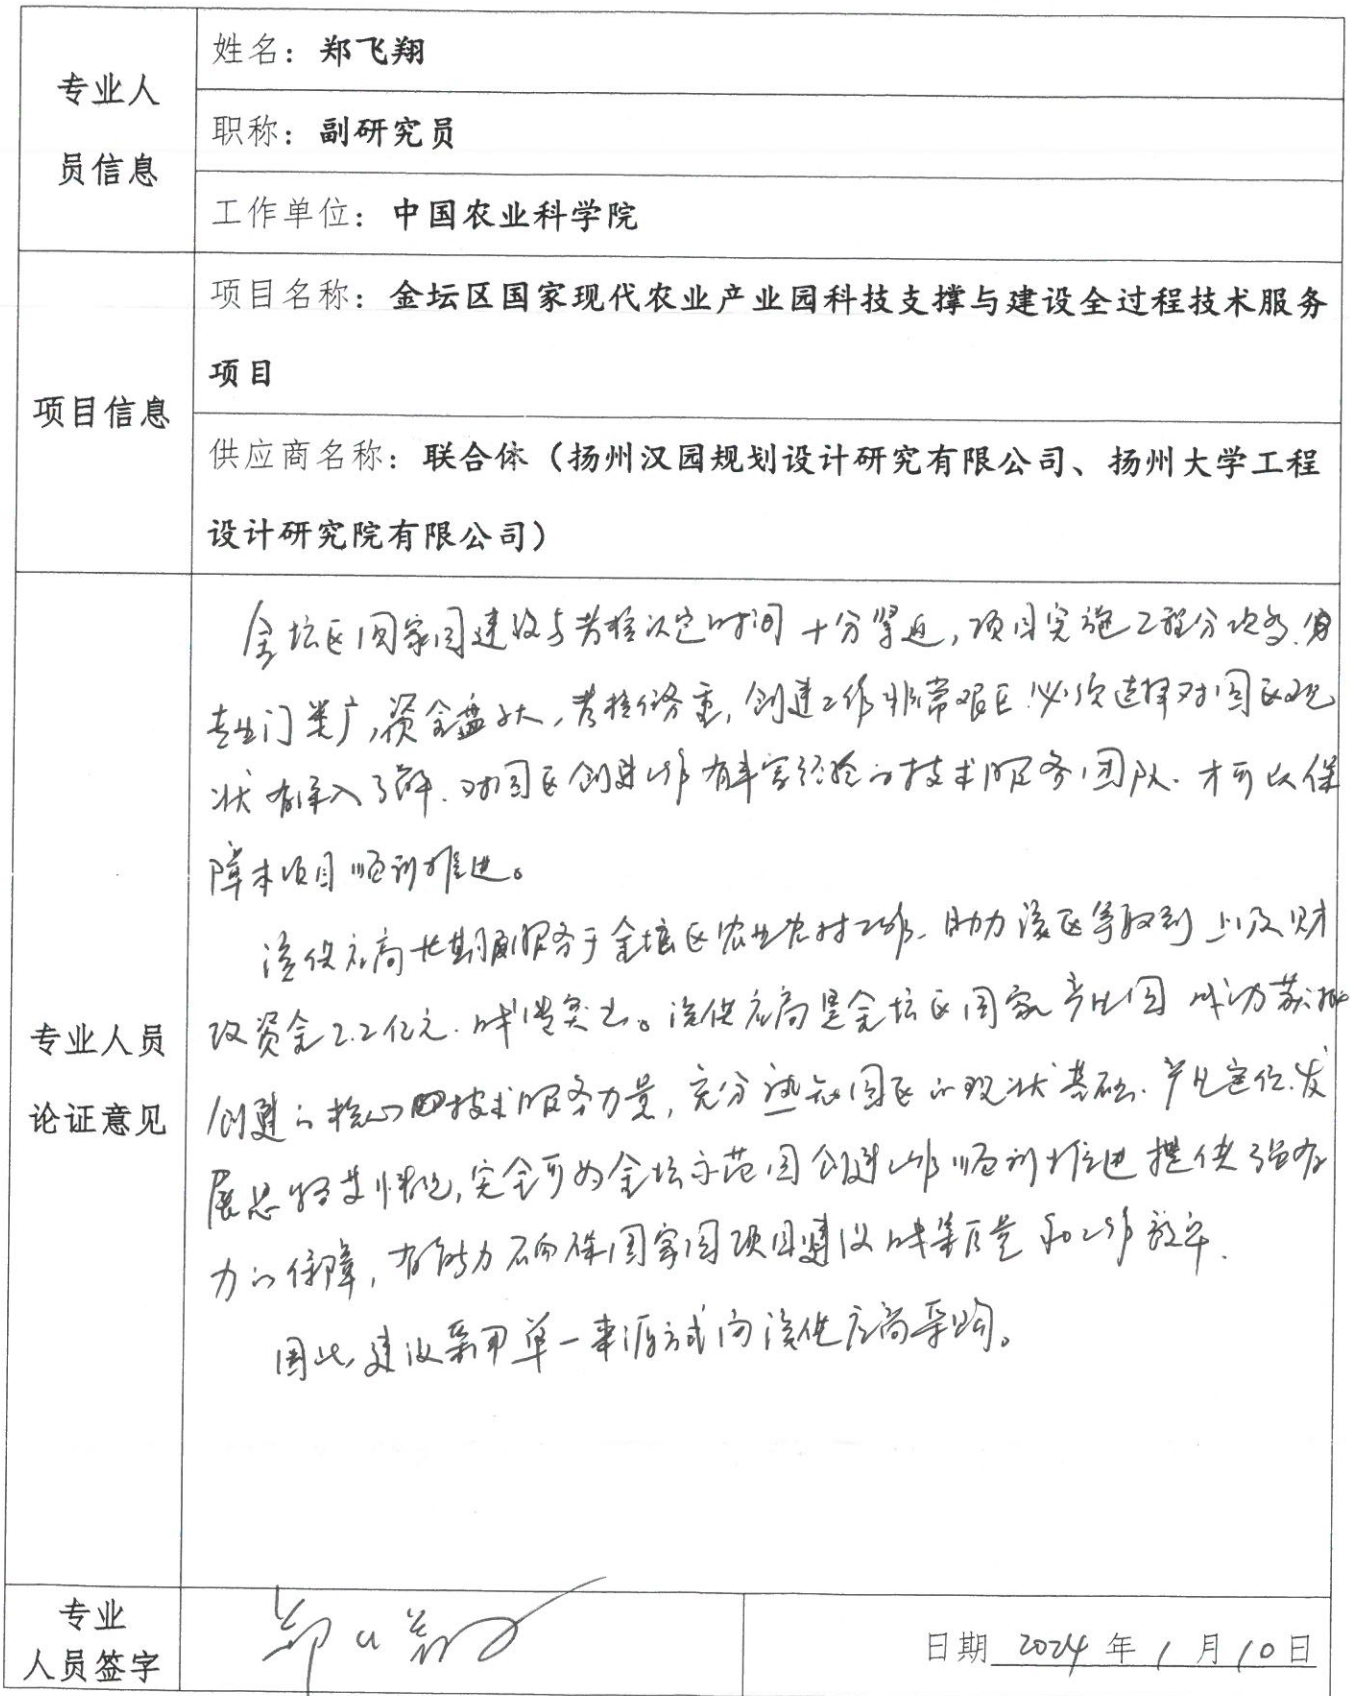 专业人
员信息
姓名：郑飞翔
职称：副研究员
工作单位：中国农业科学院
项目信息
项目名称：金坛区国家现代农业产业园科技支撑与建设全过程技术服务
项目
供应商名称：联合体（扬州汉园规划设计研究有限公司、扬州大学工程
设计研究院有限公司）
专业人员
论证意见
金坛区国家园建设与考核认定时间十分紧迫，项目实施工程分项多、
专业门类广，资金盘子大，考核任务重，创建工作非常艰巨，必须选择对园区现
状有深入了解、对园区创建工作有丰富经验的技术服务团队，才可以保
障本项目顺利推进。
该供应商长期服务于金坛区农业农村工作，助力该区争取到上级财
政资金2.2亿元，成绩突出。该供应商是金坛区国家产业园成功获批
创建的核心技术服务力量，充分熟知园区的现状基础、产业定位、发
展思路等情况，完全可为金坛示范园创建工作顺利推进提供强有
力的保障，有能力确保国家园项目建设成果质量和工作效率。
因此建议采用单一来源方式向该供应商采购。
专业
人员签字
郑飞翔
日期 2024 年 1 月 10 日